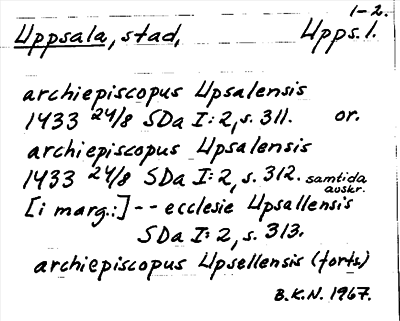 1-2.
Uppsala, stad, Upps. l.
archiepiscopus Upsalensis
1433 24/8 SDa I:2, s. 311. or.
archiepiscopus Upsalensis
1433 24/8 SDa I:2, s. 312. samtida
avskr.
[i marg.:] -- ecclesie Upsallensis
SDa I:2, s. 313.
archiepiscopus Upsellensis (forts.)
B.K.N. 1967.